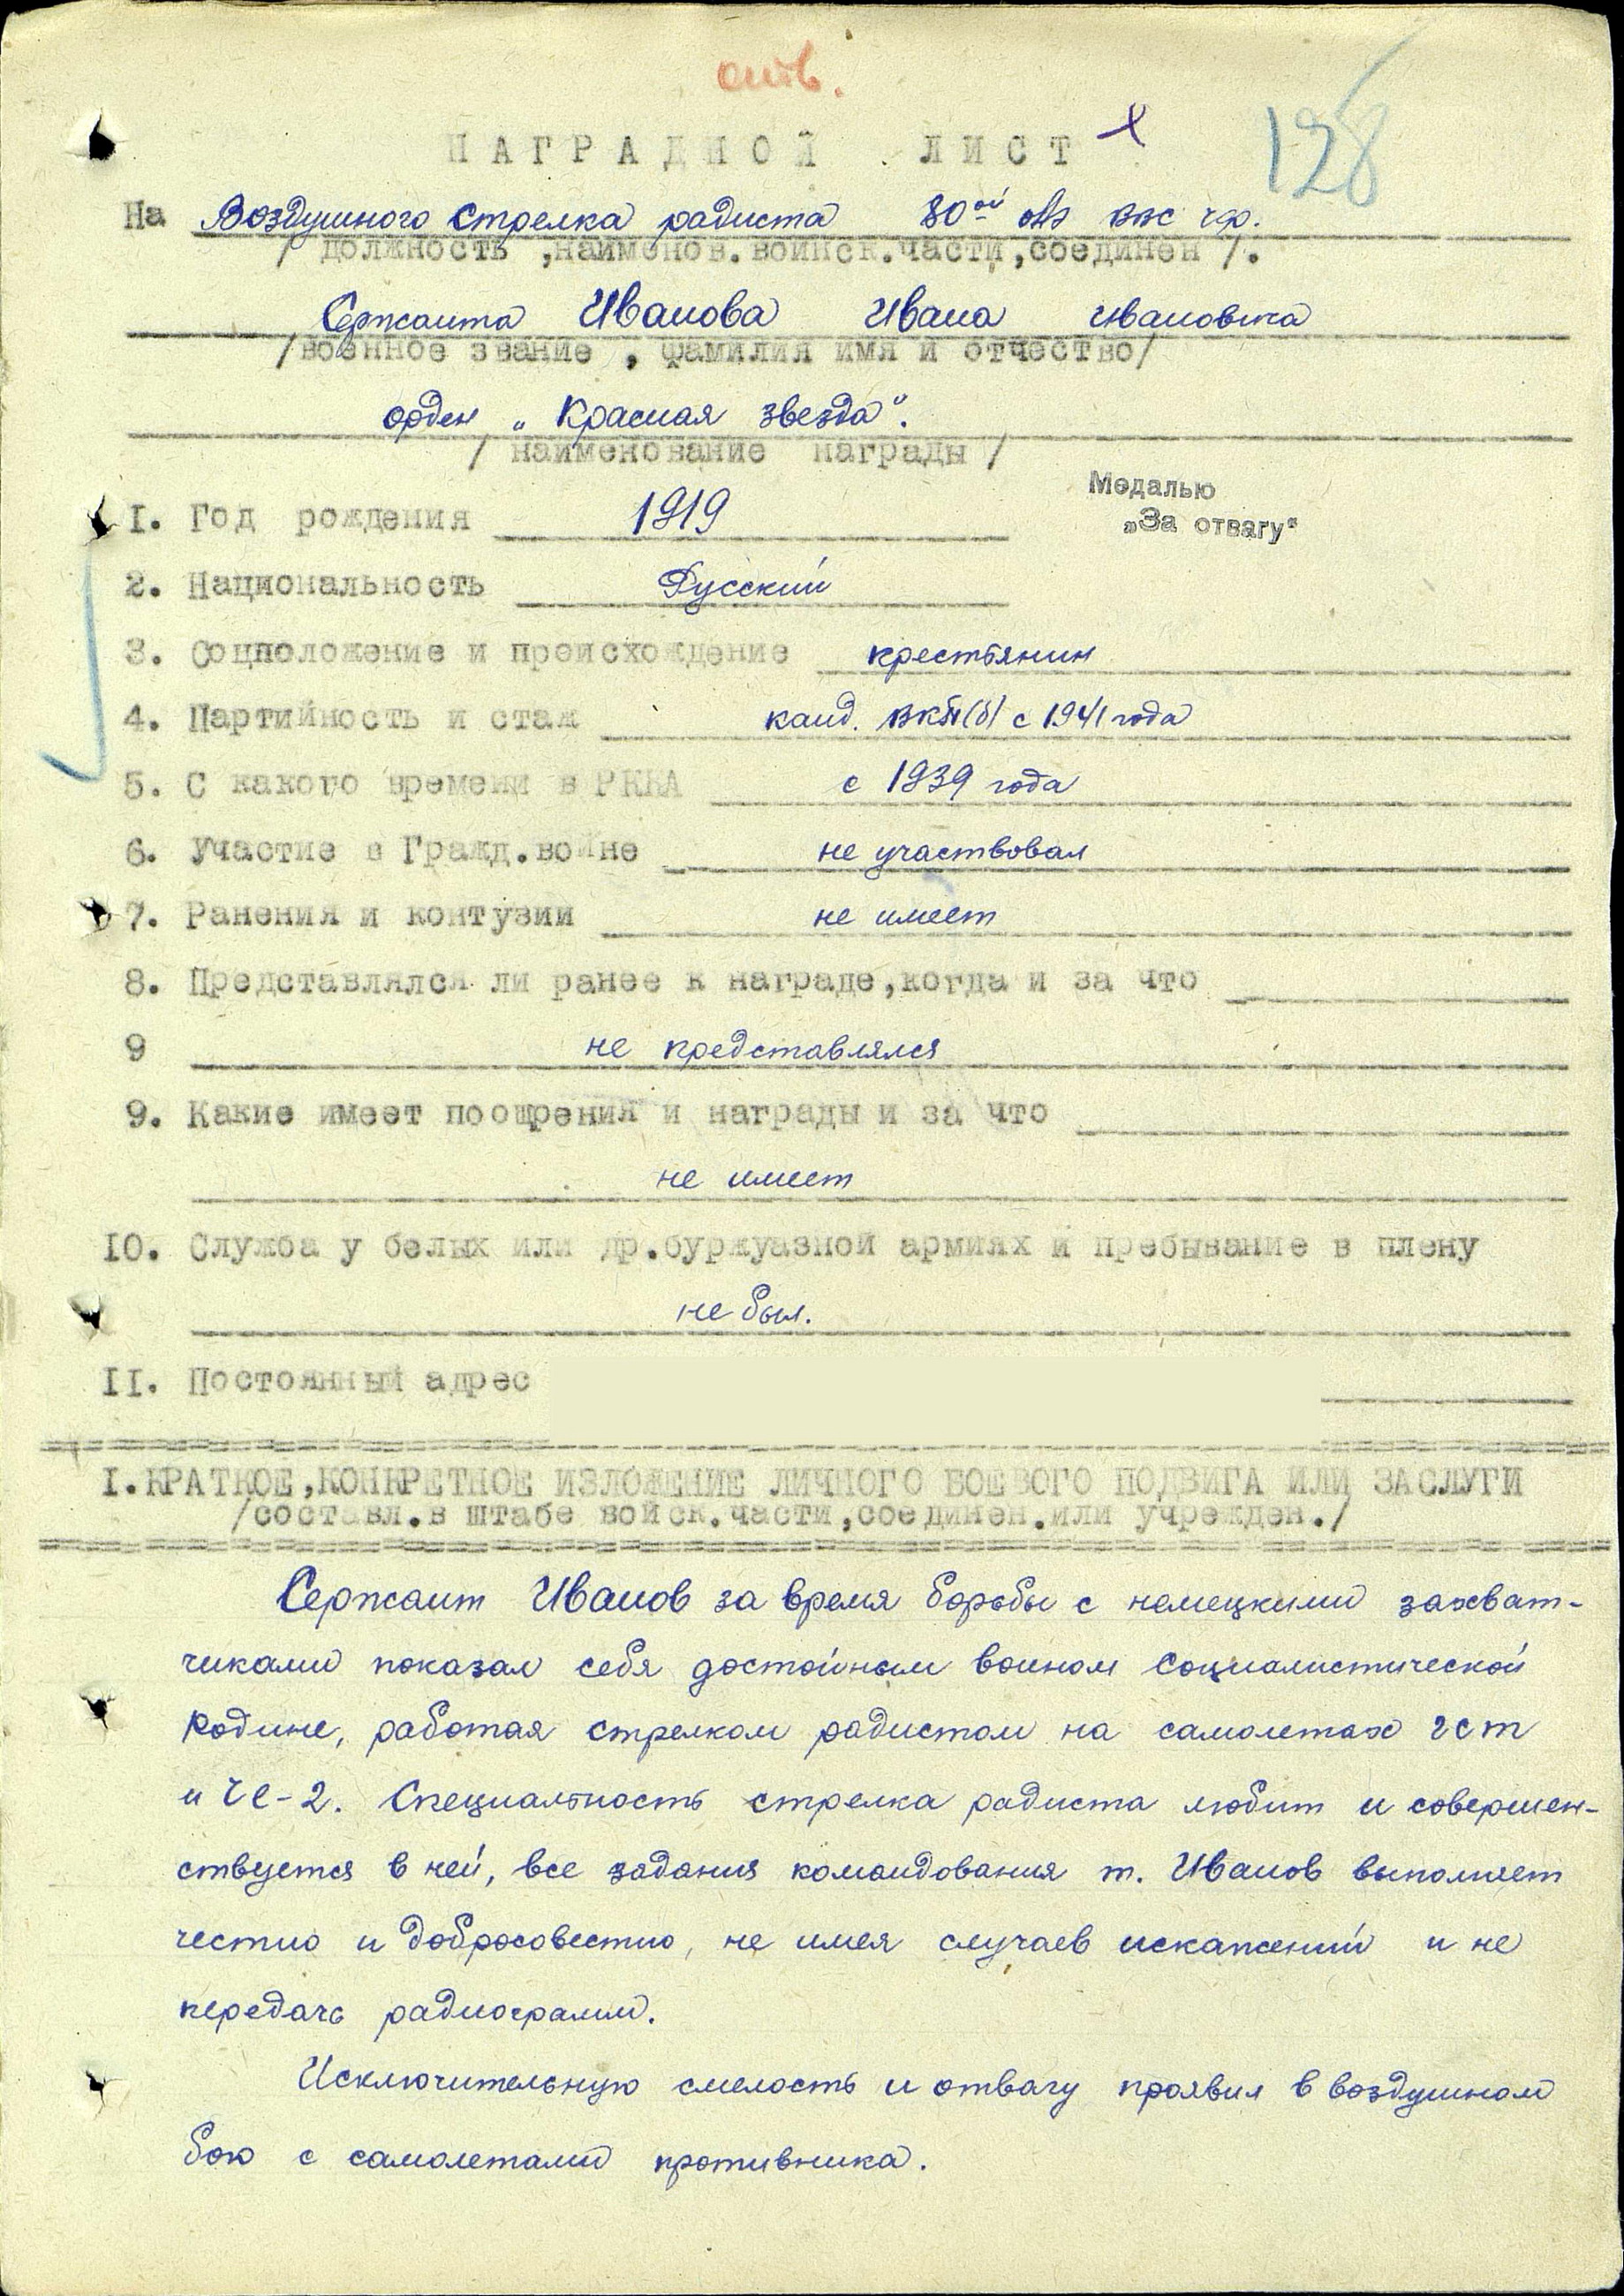 отв.
НАГРАДНОЙ ЛИСТ
128
На Воздушного стрелка радиста 80ой ОАЭ ВВС ЧФ.
/ должность ,наименов.воинск.части,соединен /.
Сержанта Иванова Ивана Ивановича
/военное звание , фамилия имя и отчество/
орден „Красная звезда".
/ наименование награды /
Медалью
„За отвагу"
I. Год рождения 1919
2. Национальность Русский
3. Соцположение и происхождение крестьянин
4. Партийность и стаж канд. ВКП(б) с 1941 года
5. С какого времени в РККА с 1939 года
6. Участие в Гражд.войне не участвовал
7. Ранения и контузии не имеет
8. Представлялся ли ранее к награде,когда и за что
9 не представлялся
9. Какие имеет поощрения и награды и за что
не имеет
IO. Служба у белых или др.буржуазной армиях и пребывание в плену
не был.
II. Постоянный адрес
I.КРАТКОЕ,КОНКРЕТНОЕ ИЗЛОЖЕНИЕ ЛИЧНОГО БОЕВОГО ПОДВИГА ИЛИ ЗАСЛУГИ
/составл.в штабе войск.части,соединен.или учрежден./
Сержант Иванов за время борьбы с немецкими захват-
чиками показал себя достойным воином социалистической
Родине, работая стрелком радистом на самолетах гст
и Че-2. Специальность стрелка радиста любит и совершен-
ствуется в ней, все задания командования т. Иванов выполняет
честно и добросовестно, не имея случаев искажений и не
передачь радиограмм.
Исключительную смелость и отвагу проявил в воздушном
бою с самолетами противника.